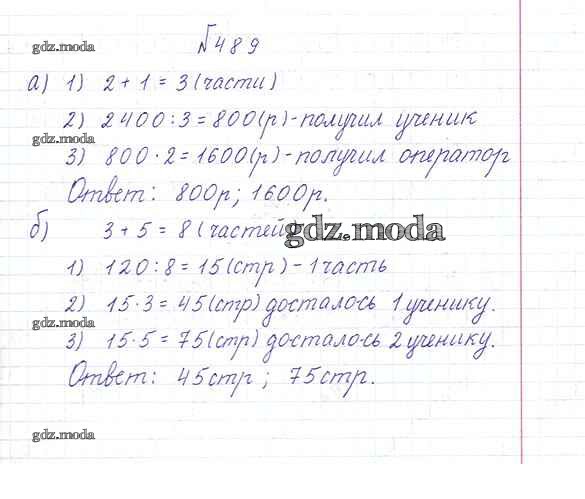 №489
gdz.moda
а) 1) 2+1=3(части)
2) 2400:3=800(р)-получил ученик
gdz.moda
3) 800·2=1600(р)-получил оператор
Ответ: 800р; 1600р.
б) 3+5=8(частей)
gdz.moda
1) 120:8=15(стр)-1часть
2) 15·3=45(стр) досталось 1 ученику.
gdz.moda
3) 15·5=75(стр) досталось 2 ученику.
Ответ: 45стр; 75стр.
gdz.moda